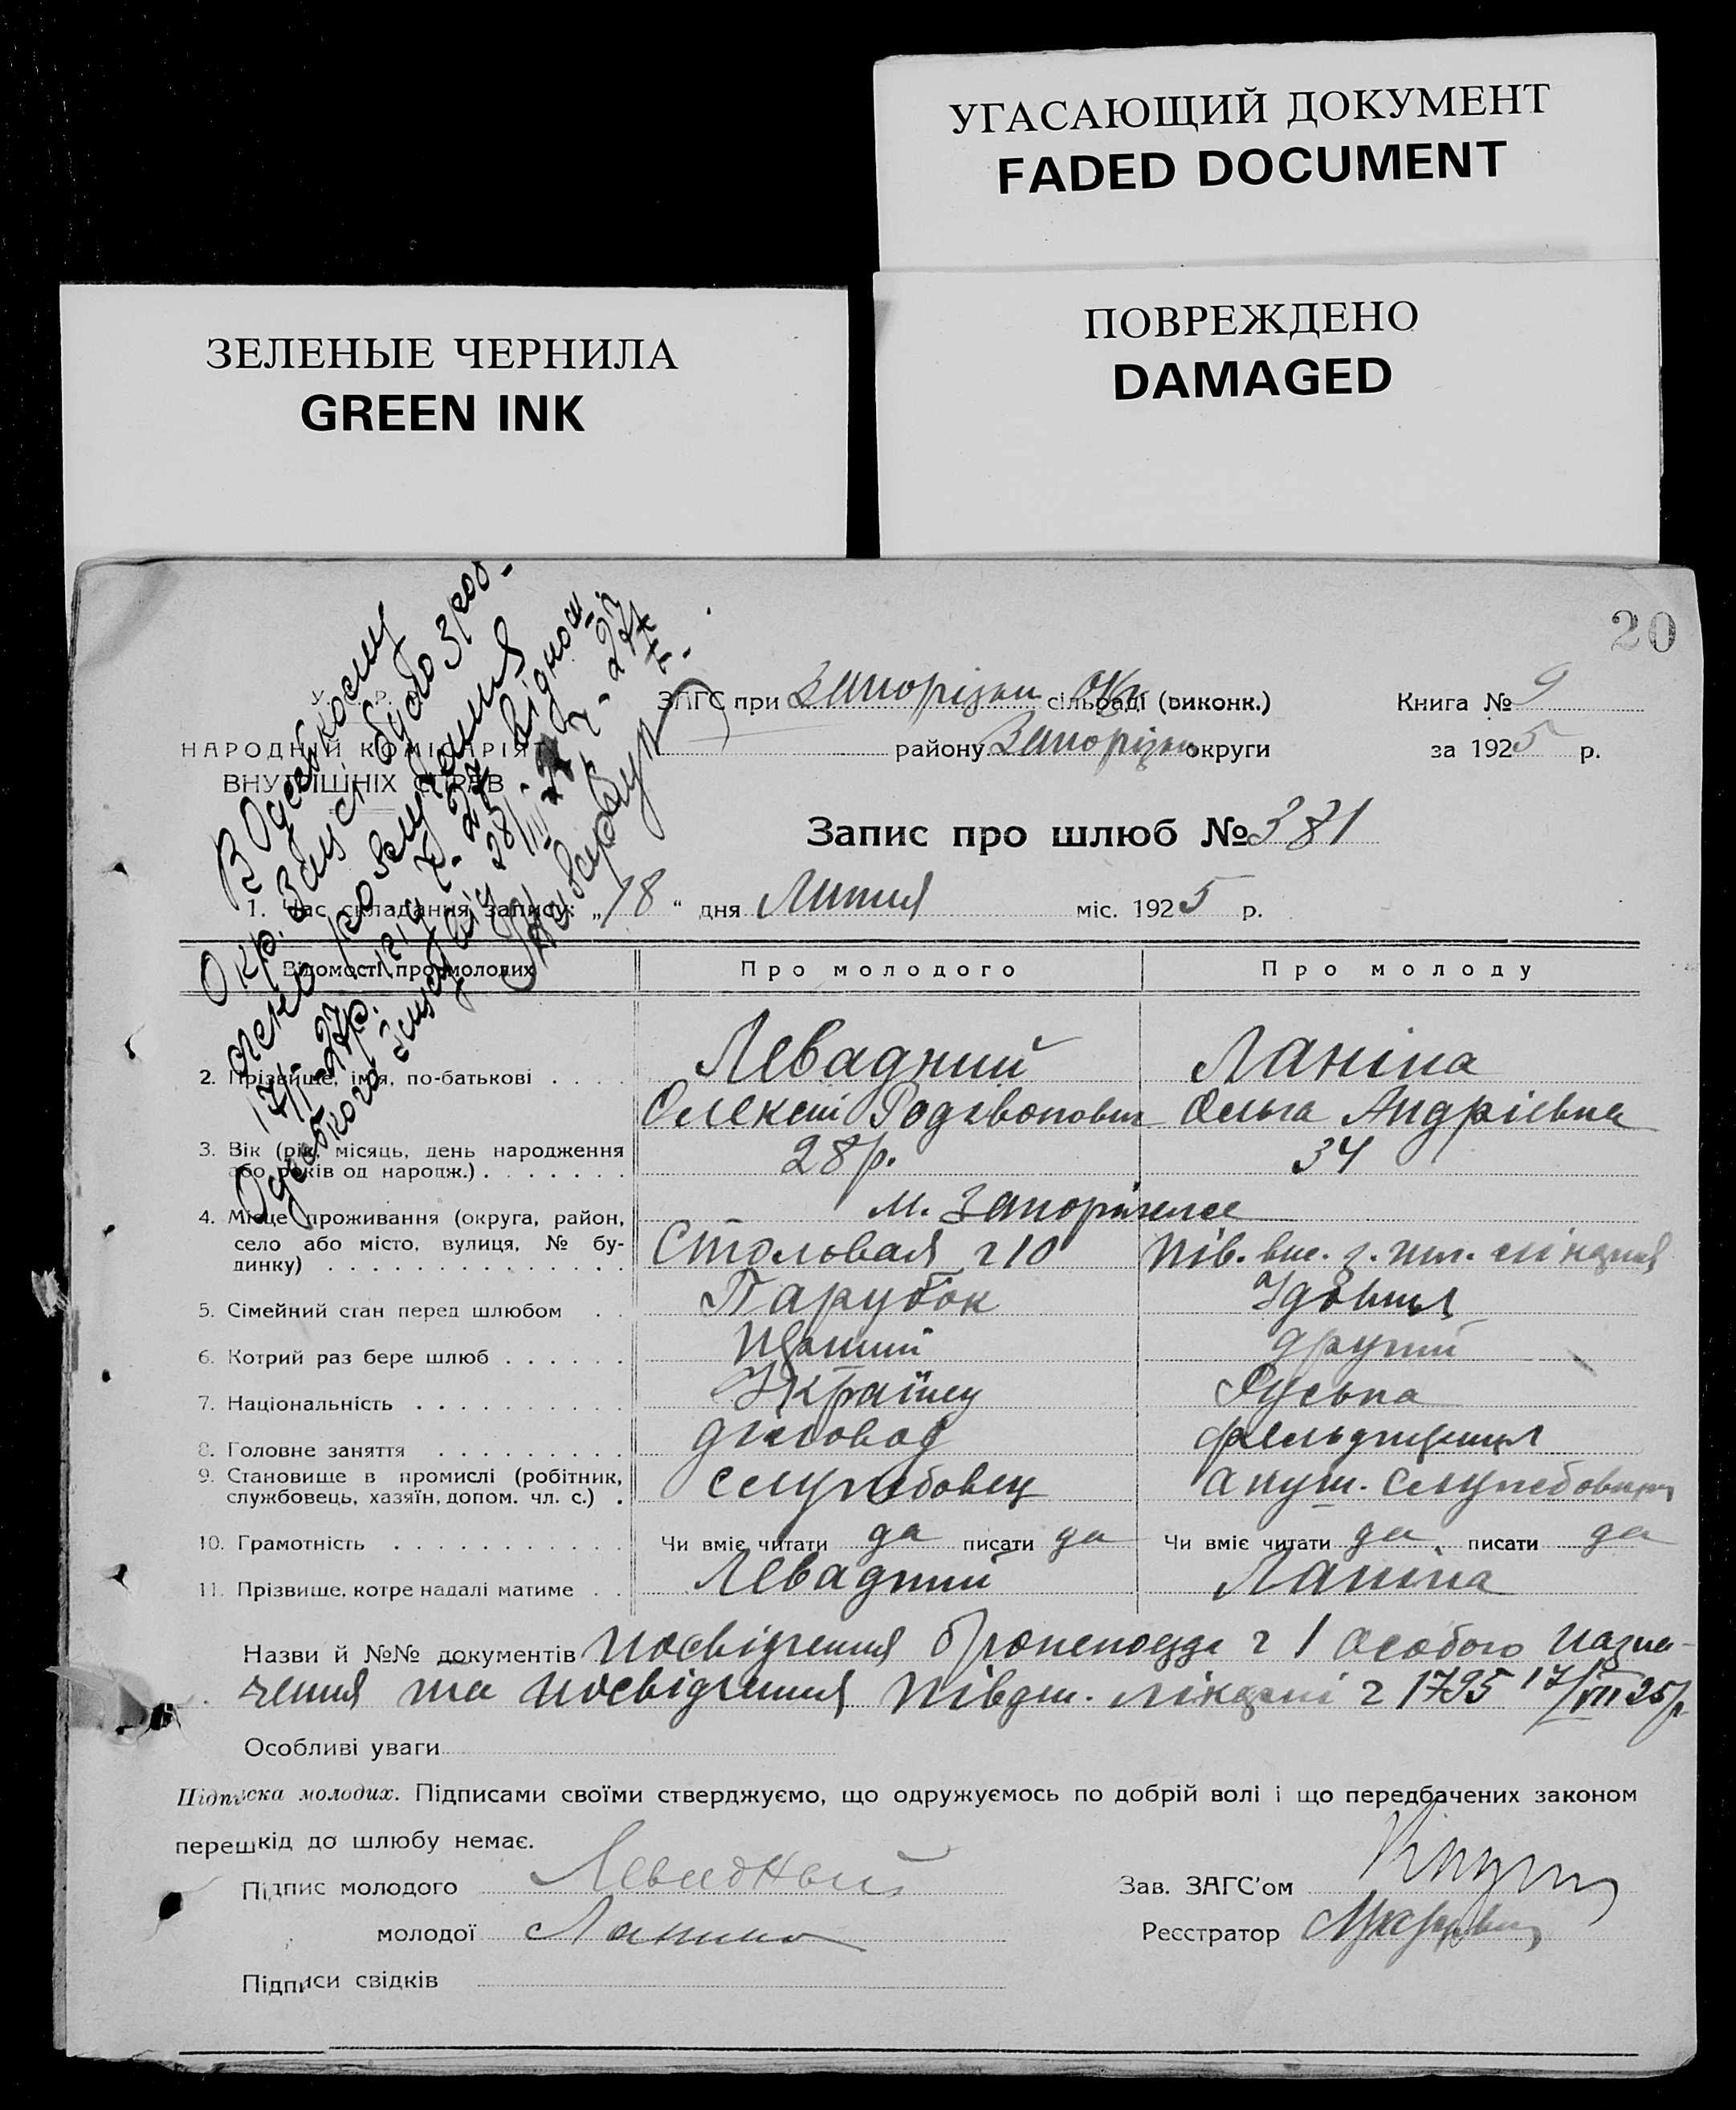 УГАСАЮЩИЙ ДОКУМЕНТ
FADED DOCUMENT
ЗЕЛЕНЫЕ ЧЕРНИЛА
GREEN INK
ПОВРЕЖДЕНО
DAMAGED
20
В Одеському
Окр. Загсі було зроб-
лено розлучення
У. Р.
НАРОДНІЙ КОМІСАРІЯТ
ВНУТРІШНІХ СПРАВ
ЗАГС при Запорізьк. Окр. сільраді (виконк.)
району Запорізьк. округи
Книга № 9
за 1925 р.
Запис про шлюб № 381
1. Час складання запису: „18“ дня Липня міс. 1925 р.
Відомості про молодих
Про молодого
Про молоду
2. Прізвище, ім'я, по-батькові
Левадний
Ланіна
Олексій Родівонович
Ольга Андрієвна
3. Вік (рік, місяць, день народження
або років од народж.)
28 р.
34
4. Місце проживання (округа, район,
село або місто, вулиця, № бу-
динку)
м. Запоріжжє
Столовая ч 10
5. Сімейний стан перед шлюбом
Парубок
Удовиця
6. Котрий раз бере шлюб
Перший
другий
7. Національність
Українец
Руська
8. Головне заняття
діловод
фельдшериця
9. Становище в промислі (робітник,
службовець, хазяїн, допом. чл. с.)
Службовец
10. Грамотність
Чи вміє читати да писати да
Чи вміє читати да писати да
11. Прізвище, котре надалі матиме
Левадний
Ланіна
Назви й №№ документів Посвідчення бронепоезда ч 1 особого назна-
чения та посвідчення Півден. лікарні ч 1795 17/VII 25 р.
Особливі уваги
Підписка молодих. Підписами своїми стверджуємо, що одружуємось по добрій волі і що передбачених законом
перешкід до шлюбу немає.
Підпис молодого Левадный
молодої Ланина
Підписи свідків
Зав. ЗАГС'ом
Реєстратор